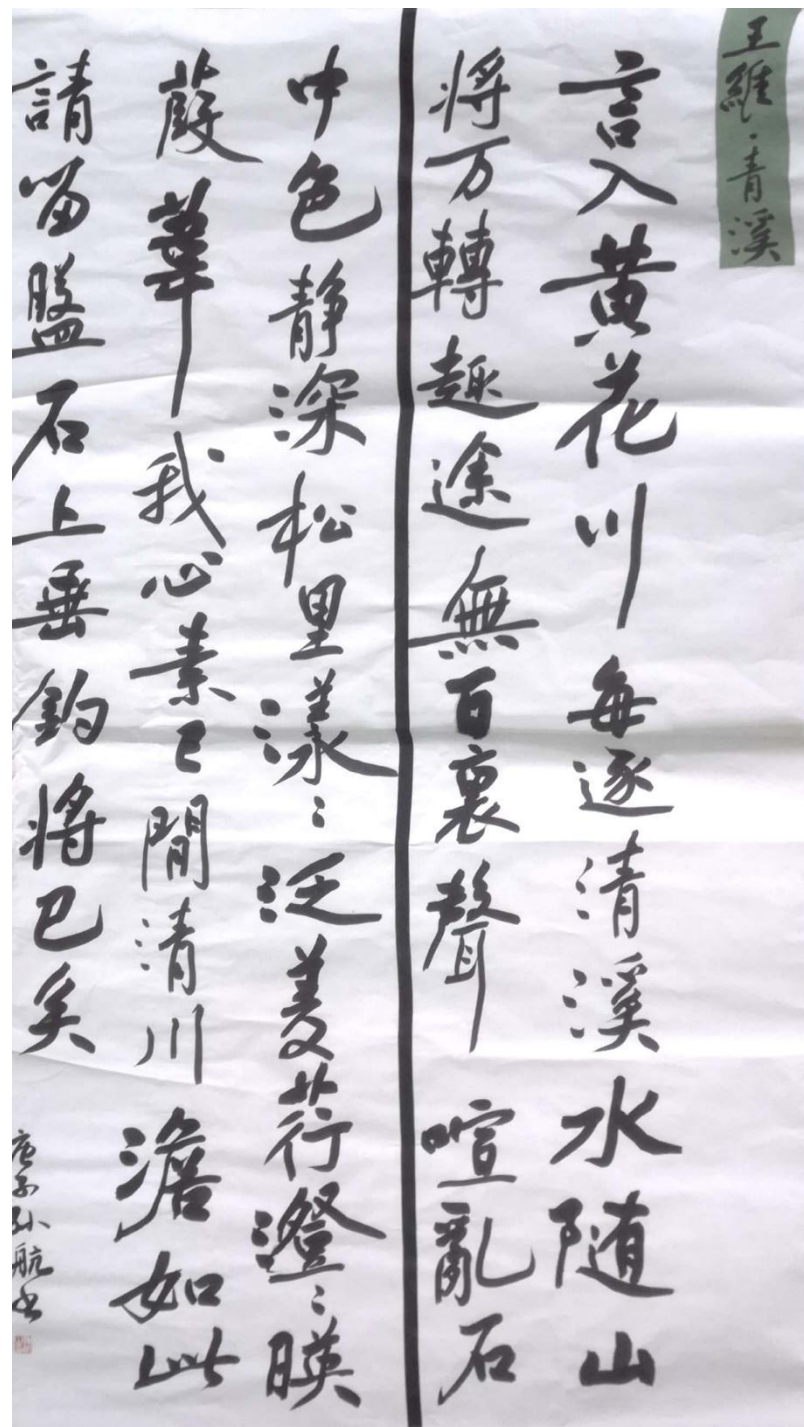 王維·青溪
言入黃花川每逐清溪水随山
将万轉趣途無百裏聲喧亂石
中色靜深松里漾〻泛菱荇澄〻暎
葭葦我心素已閒清川澹如此
請留盤石上垂釣将已矣
庚子孙航书